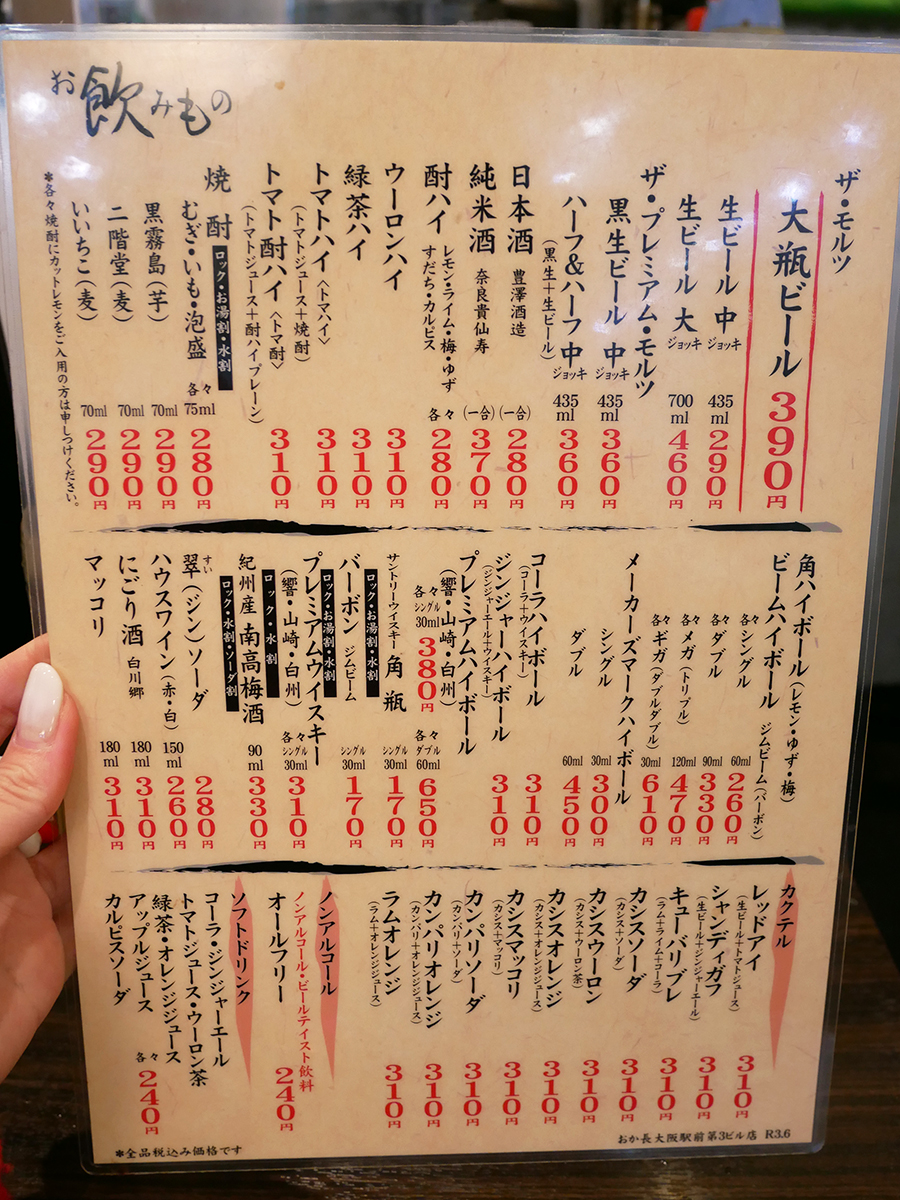 お飲みもの
ザ・モルツ
大瓶ビール 390円
生ビール 中ジョッキ 435ml 290円
生ビール 大ジョッキ 700ml 460円
ザ・プレミアム・モルツ
黒生ビール 中ジョッキ 435ml 360円
ハーフ&ハーフ 中ジョッキ 435ml 360円
(黒生+生ビール)
日本酒 豊澤酒造 (一合) 280円
純米酒 奈良貴仙寿 (一合) 370円
酎ハイ レモン・ライム・梅・ゆず
すだち・カルピス 各々 280円
ウーロンハイ 310円
緑茶ハイ 310円
トマトハイ〈トマハイ〉 310円
(トマトジュース+焼酎)
トマト酎ハイ〈トマ酎〉 310円
(トマトジュース+酎ハイプレーン)
焼酎 ロック・お湯割・水割
むぎ・いも・泡盛 各々 75ml 280円
黒霧島(芋) 70ml 290円
二階堂(麦) 70ml 290円
いいちこ(麦) 70ml 290円
*各々焼酎にカットレモンをご入用の方は申しつけください。
角ハイボール(レモン・ゆず・梅)
ビームハイボール ジムビーム(バーボン)
各々シングル 60ml 260円
各々ダブル 90ml 330円
各々メガ(トリプル) 120ml 470円
各々ギガ(ダブルダブル) 30ml 610円
メーカーズマークハイボール
シングル 30ml 300円
ダブル 60ml 450円
コーラハイボール 310円
(コーラ+ウイスキー)
ジンジャーハイボール 310円
(ジンジャーエール+ウイスキー)
プレミアムハイボール
(響・山崎・白州)
各々シングル 30ml 380円
各々ダブル 60ml 650円
サントリーウイスキー 角瓶 シングル 30ml 170円
ロック・お湯割・水割
バーボン ジムビーム シングル 30ml 170円
ロック・お湯割・水割
プレミアムウイスキー
(響・山崎・白州) 各々シングル 30ml 310円
ロック・水割
紀州産 南高梅酒 90ml 330円
ロック・水割・ソーダ割
翠(ジン)ソーダ 280円
すい
ハウスワイン(赤・白) 150ml 260円
にごり酒 白川郷 180ml 310円
マッコリ 180ml 310円
カクテル
レッドアイ 310円
(生ビール+トマトジュース)
シャンディガフ 310円
(生ビール+ジンジャーエール)
キューバリブレ 310円
(ラム+ライム+コーラ)
カシスソーダ 310円
(カシス+ソーダ)
カシスウーロン 310円
(カシス+ウーロン茶)
カシスオレンジ 310円
(カシス+オレンジジュース)
カシスマッコリ 310円
(カシス+マッコリ)
カンパリソーダ 310円
(カンパリ+ソーダ)
カンパリオレンジ 310円
(カンパリ+オレンジジュース)
ラムオレンジ 310円
(ラム+オレンジジュース)
ノンアルコール
ノンアルコール・ビールテイスト飲料
オールフリー 240円
ソフトドリンク
コーラ・ジンジャーエール
トマトジュース・ウーロン茶
緑茶・オレンジジュース
アップルジュース
カルピスソーダ
各々 240円
おか長大阪駅前第3ビル店 R3.6
*全品税込み価格です